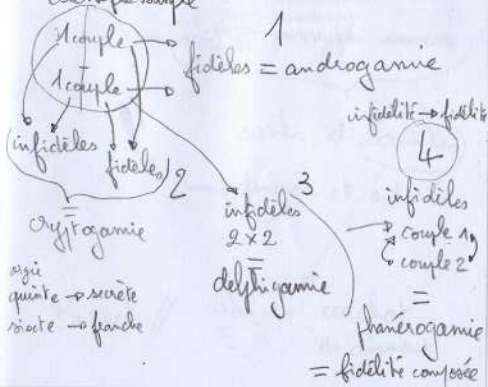 1 couple
1 couple
1
fidèles = androgamie
infidèles
fidèles
2
=
cryptogamie
orgie
quinte → secrète
sixte → franche
3
infidèles
2 x 2
=
delphigamie
infidélité → fidélité
4
infidèles
couple 1
couple 2
=
phanérogamie
= fidélité composée